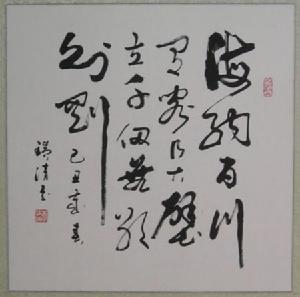 海納百川
有容乃大壁
立千仞無欲
則剛 己丑歲春
清書